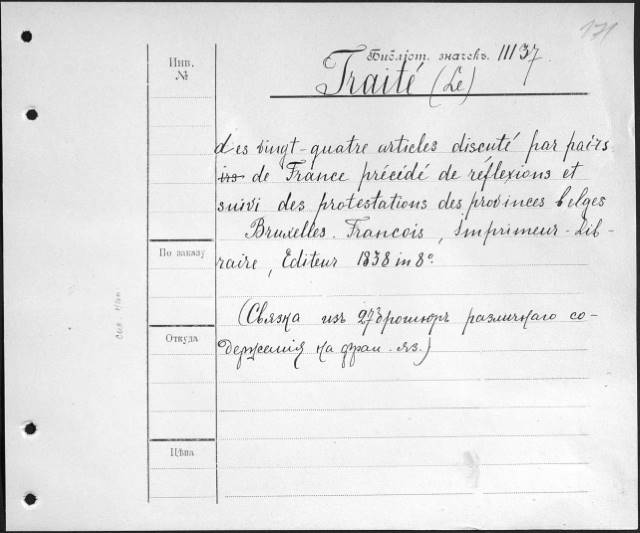 171
Инв.
№
Библіот. значекъ. 11137
Traité (Le)
des vingt-quatre articles discuté par pairs
irs de France précédé de réflexions et
suivi des protestations des provinces belges
Bruxelles. Francois, Imprimeur-Lib-
raire, Editeur 1838 in 8º.
По заказу
(Связка изъ 27 брошюръ различнаго со-
держанія на фран. яз.)
Откуда
Цѣна